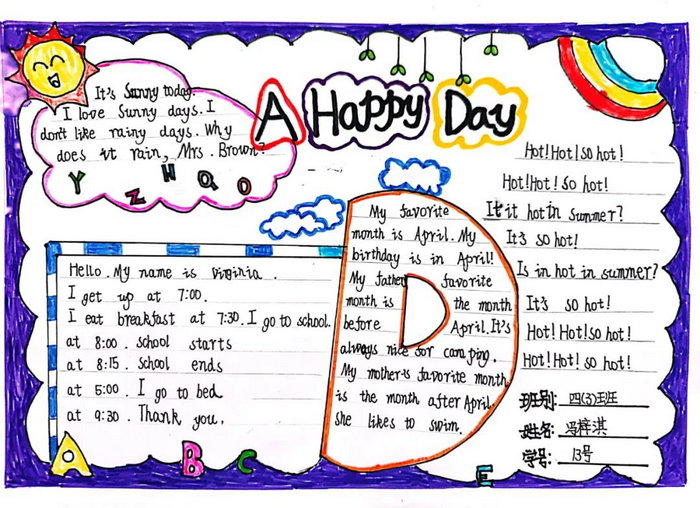 A Happy Day
It's Sunny today.
I love Sunny days. I
don't like rainy days. Why
does it rain, Mrs. Brown?
Y Z N Q O
Hello. My name is Virginia.
I get up at 7:00.
I eat breakfast at 7:30. I go to school.
at 8:00. school starts
at 8:15. school ends
at 5:00. I go to bed
at 9:30. Thank you.
A B C
D
My favorite
month is April. My
birthday is in April!
My father favorite
month is the month
before April. It's
always nice for camping.
My mother's favorite month
is the month after April.
She likes to swim.
Hot! Hot! so hot!
Hot! Hot! so hot!
It it hot in summer?
It's so hot!
Is in hot in summer?
It's so hot!
Hot! Hot! so hot!
Hot! Hot! so hot!
班别: 四(3)班
姓名: 冯梓淇
学号: 13号
E